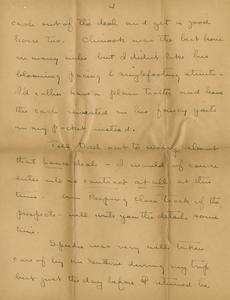 2
cash out of the deal and get a good
horse too. Chinook was the best horse
in many miles but I didn't like his
blooming pacing & singlefooting stunts –
I'd rather have a plain trotter and have
the cash invested in his fancy gaits
in my pocket instead.
Tell Dad not to worry about
that horse deal – I would of course
enter into no contract at all at this
time. Am keeping close track of the
prospects – will write you the details some
time.
Spider was very well taken
care of by Mr. during my trip
but just the day before I returned he